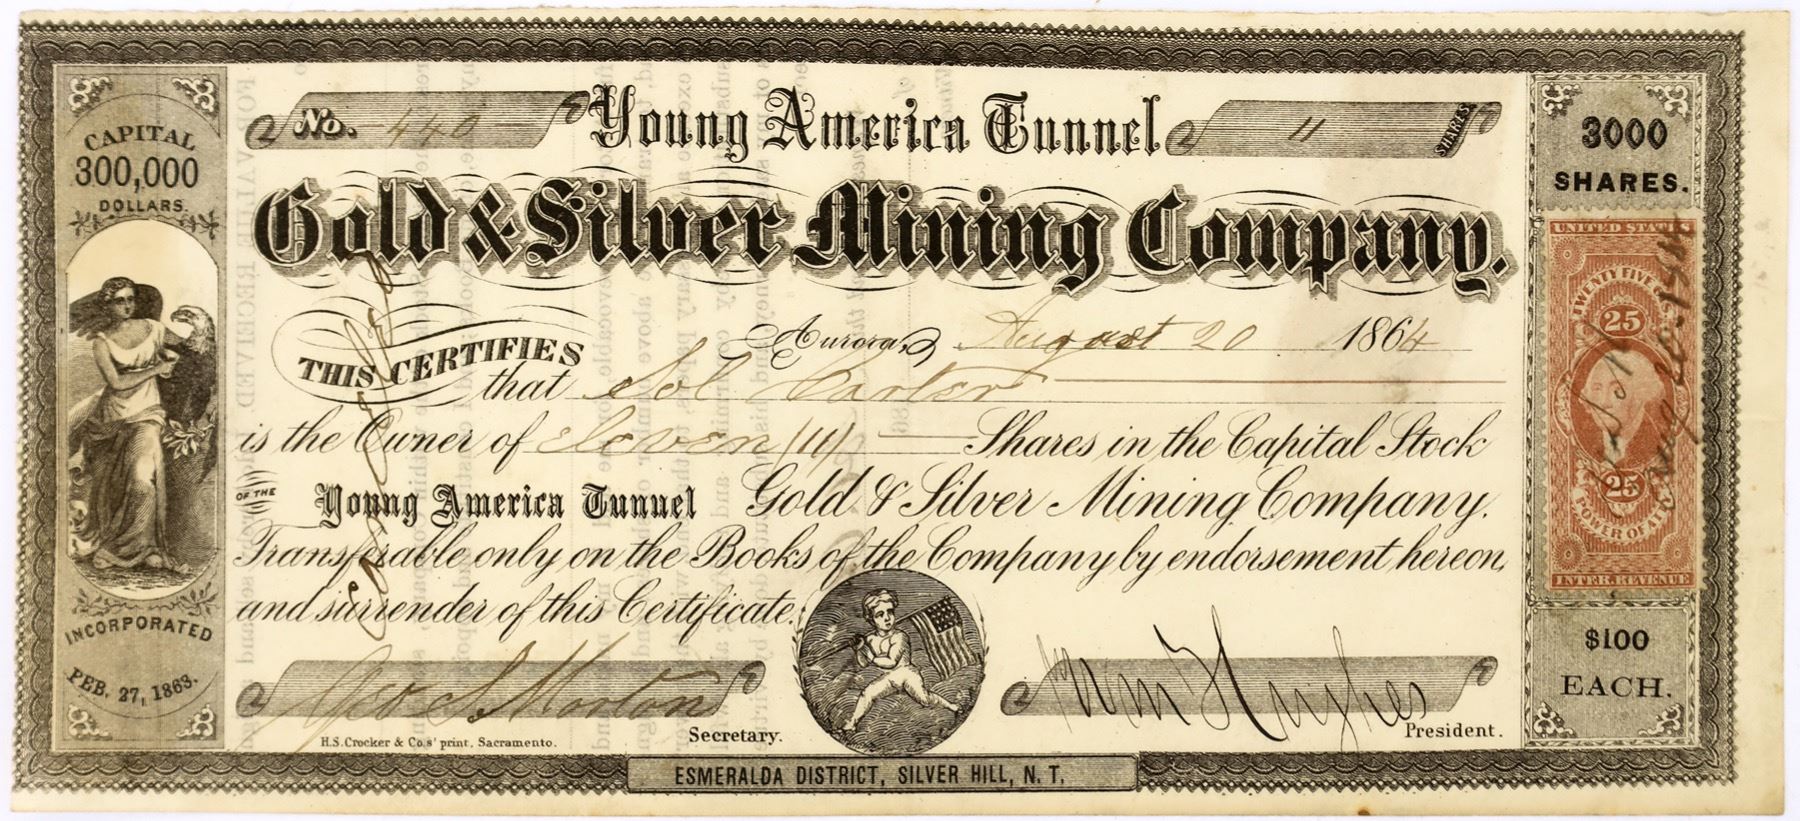 No. 440 Young America Tunnel 11 SHARES
Gold & Silver Mining Company.
CAPITAL
300,000
DOLLARS.
INCORPORATED
FEB. 27, 1863.
Aurora, August 20 1864
THIS CERTIFIES
that Sol Carter
is the Owner of eleven (11) Shares in the Capital Stock
OF THE Young America Tunnel Gold & Silver Mining Company.
Transferable only on the Books of the Company by endorsement hereon,
and surrender of this Certificate.
Geo S. Morton
Secretary.
Wm Hughes
President.
H.S. Crocker & Co's' print, Sacramento.
ESMERALDA DISTRICT, SILVER HILL, N. T.
Cancelled
3000
SHARES.
UNITED STATES
TWENTY FIVE
25
25
POWER OF
INTER. REVENUE
Aug 20
$100
EACH.